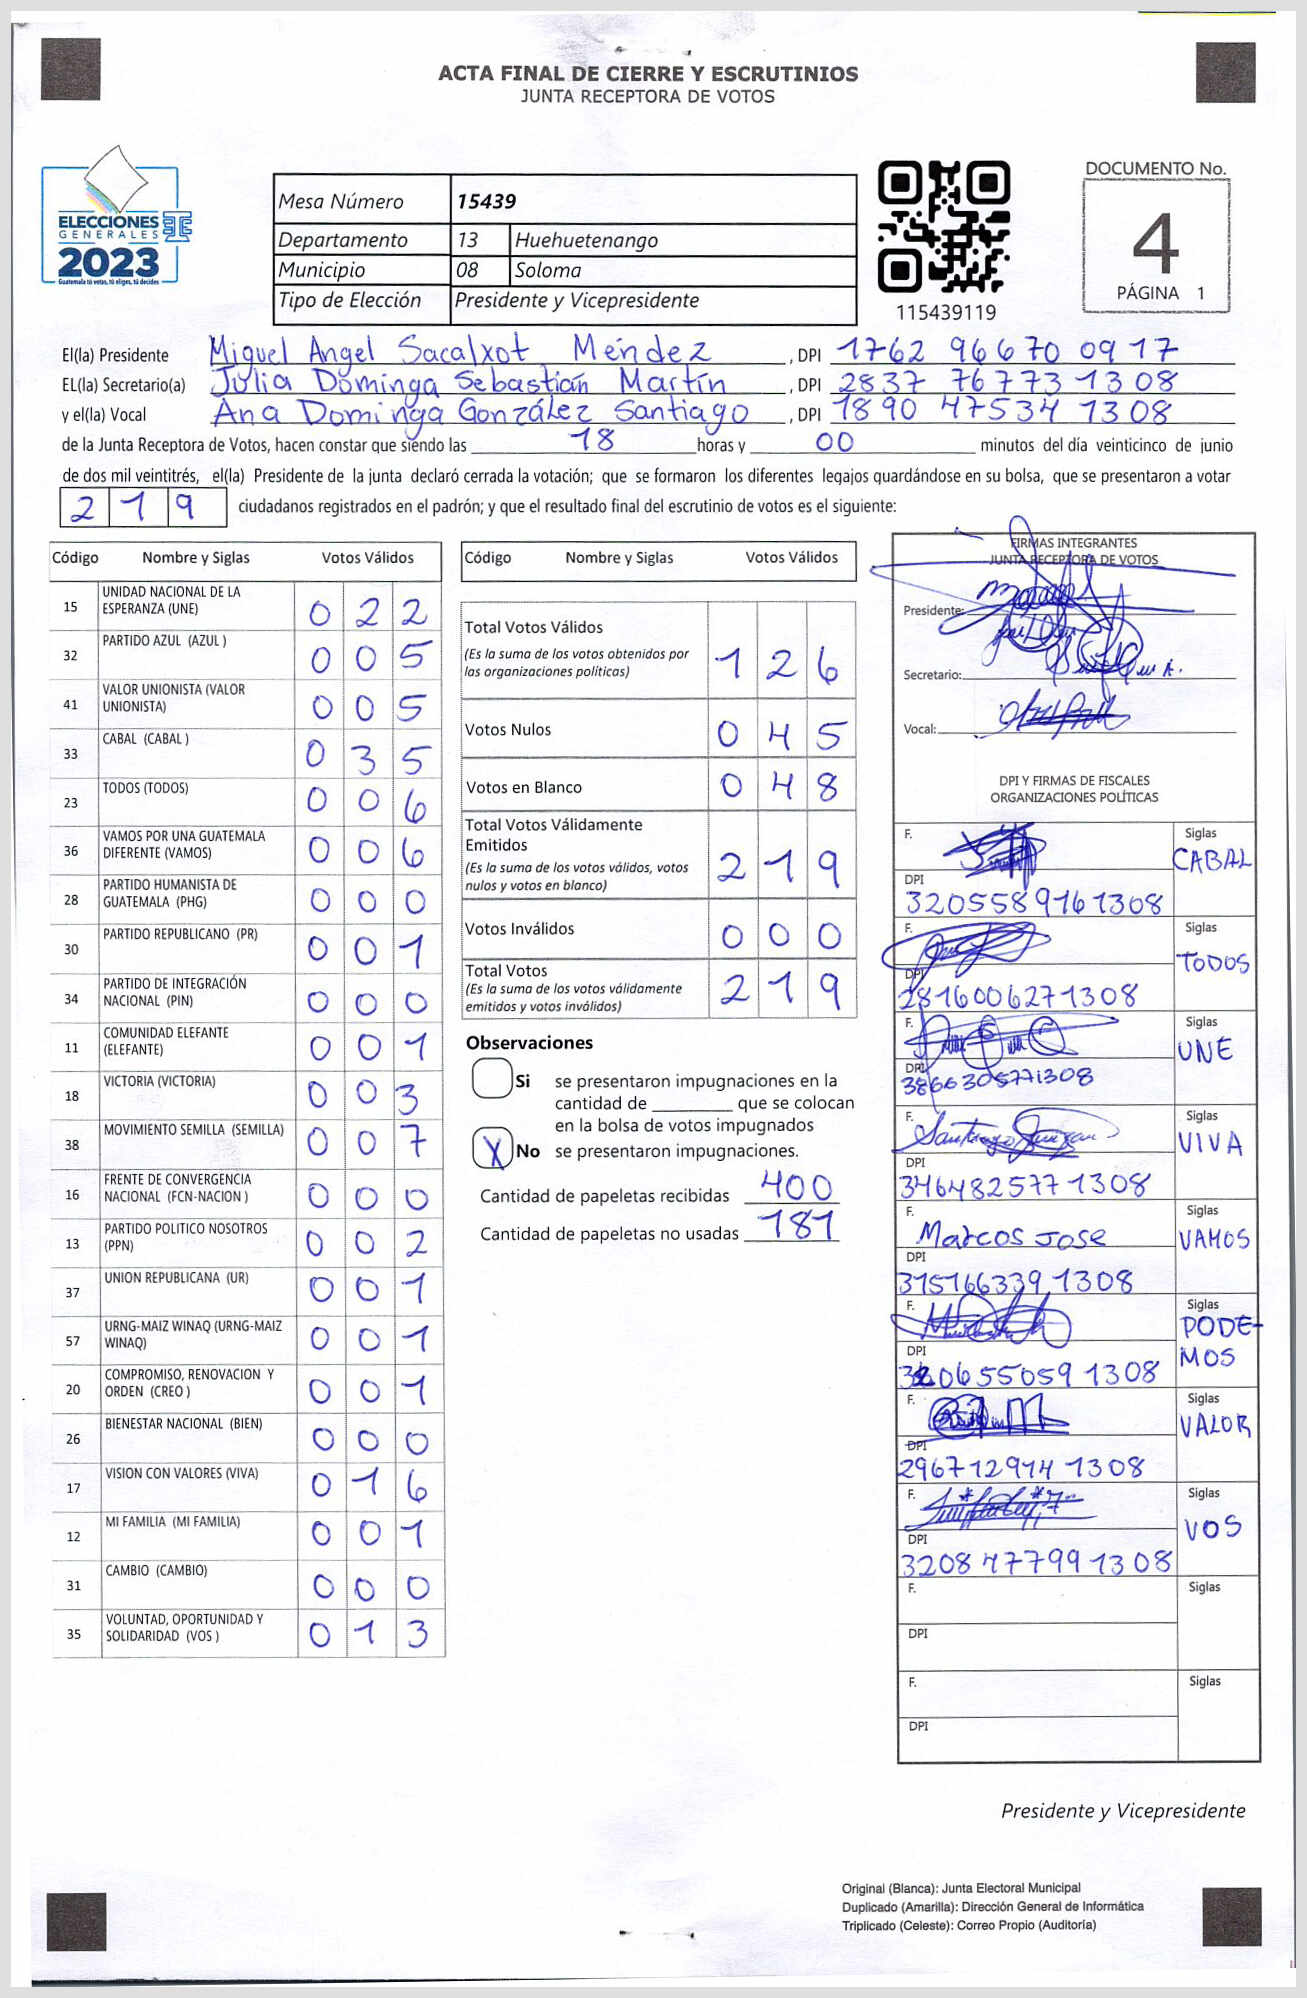 ACTA FINAL DE CIERRE Y ESCRUTINIOS
JUNTA RECEPTORA DE VOTOS
ELECCIONES
GENERALES
2023
Guatemala tú votas, tú eliges, tú decides
Mesa Número 15439
Departamento 13 Huehuetenango
Municipio 08 Soloma
Tipo de Elección Presidente y Vicepresidente
115439119
DOCUMENTO No.
4
PÁGINA 1
El(la) Presidente Miguel Angel Sacalxot Méndez , DPI 1762 96670 0917
EL(la) Secretario(a) Julia Dominga Sebastián Martín , DPI 2837 76773 1308
y el(la) Vocal Ana Dominga González Santiago , DPI 1890 47534 1308
de la Junta Receptora de Votos, hacen constar que siendo las 18 horas y 00 minutos del día veinticinco de junio
de dos mil veintitrés, el(la) Presidente de la junta declaró cerrada la votación; que se formaron los diferentes legajos guardándose en su bolsa, que se presentaron a votar
219 ciudadanos registrados en el padrón; y que el resultado final del escrutinio de votos es el siguiente:
Código Nombre y Siglas Votos Válidos
15 UNIDAD NACIONAL DE LA ESPERANZA (UNE) 022
32 PARTIDO AZUL (AZUL ) 005
41 VALOR UNIONISTA (VALOR UNIONISTA) 005
33 CABAL (CABAL ) 035
23 TODOS (TODOS) 006
36 VAMOS POR UNA GUATEMALA DIFERENTE (VAMOS) 006
28 PARTIDO HUMANISTA DE GUATEMALA (PHG) 000
30 PARTIDO REPUBLICANO (PR) 001
34 PARTIDO DE INTEGRACIÓN NACIONAL (PIN) 000
11 COMUNIDAD ELEFANTE (ELEFANTE) 001
18 VICTORIA (VICTORIA) 003
38 MOVIMIENTO SEMILLA (SEMILLA) 007
16 FRENTE DE CONVERGENCIA NACIONAL (FCN-NACION ) 000
13 PARTIDO POLITICO NOSOTROS (PPN) 002
37 UNION REPUBLICANA (UR) 001
57 URNG-MAIZ WINAQ (URNG-MAIZ WINAQ) 001
20 COMPROMISO, RENOVACION Y ORDEN (CREO ) 001
26 BIENESTAR NACIONAL (BIEN) 000
17 VISION CON VALORES (VIVA) 016
12 MI FAMILIA (MI FAMILIA) 001
31 CAMBIO (CAMBIO) 000
35 VOLUNTAD, OPORTUNIDAD Y SOLIDARIDAD (VOS ) 013
Código Nombre y Siglas Votos Válidos
Total Votos Válidos 126
(Es la suma de los votos obtenidos por
las organizaciones políticas)
Votos Nulos 045
Votos en Blanco 048
Total Votos Válidamente
Emitidos 219
(Es la suma de los votos válidos, votos
nulos y votos en blanco)
Votos Inválidos 000
Total Votos 219
(Es la suma de los votos válidamente
emitidos y votos inválidos)
Observaciones
Si se presentaron impugnaciones en la
cantidad de ________ que se colocan
en la bolsa de votos impugnados
X No se presentaron impugnaciones.
Cantidad de papeletas recibidas 400
Cantidad de papeletas no usadas 181
FIRMAS INTEGRANTES
JUNTA RECEPTORA DE VOTOS
Presidente:
Secretario:
Vocal:
DPI Y FIRMAS DE FISCALES
ORGANIZACIONES POLÍTICAS
F. Siglas
CABAL
DPI
3205589161308
F. Siglas
TODOS
DPI
2816006271308
F. Siglas
UNE
DPI
3866305771308
F. Santiago Siglas
VIVA
DPI
3464825771308
F. Marcos Jose Siglas
VAMOS
DPI
3151663391308
F. Siglas
PODE-
MOS
DPI
3206550591308
F. Siglas
VALOR
DPI
2967129141308
F. Siglas
VOS
DPI
3208477991308
F. Siglas
DPI
F. Siglas
DPI
Presidente y Vicepresidente
Original (Blanca): Junta Electoral Municipal
Duplicado (Amarilla): Dirección General de Informática
Triplicado (Celeste): Correo Propio (Auditoría)